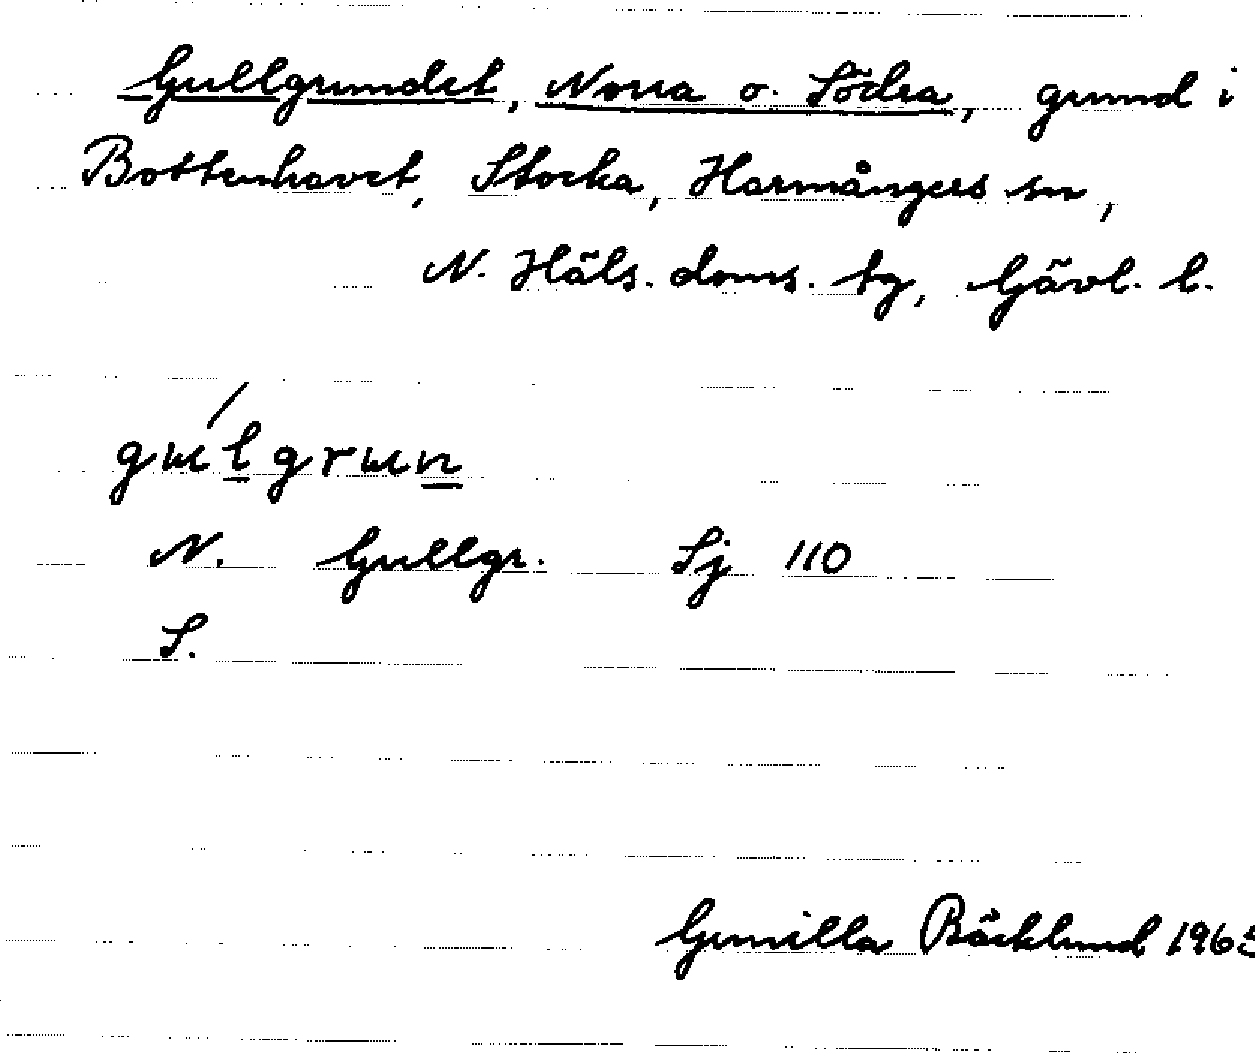 Gullgrundet, Norra o. Södra, grund i
Bottenhavet, Stocka, Harmångers sn,
N. Häls. doms. tg, Gävl. l.
gulgrun
N. Gullgr. Sj 110
S.
Gunilla Bäcklund 1965